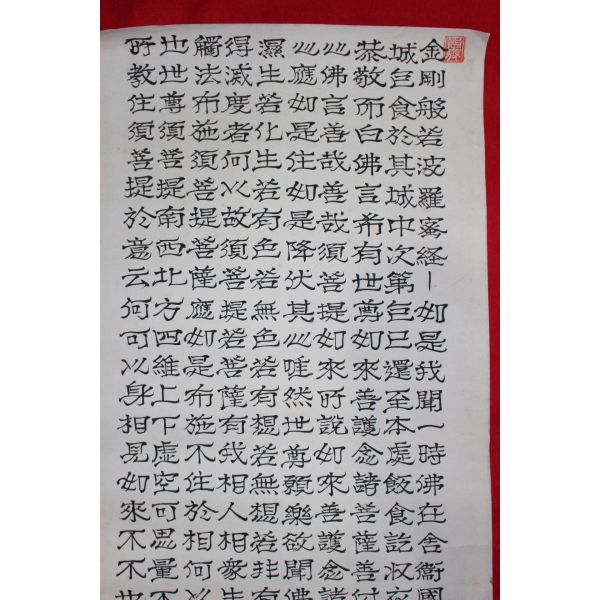 金剛般若波羅蜜経｜如是我聞一時佛在舍衛國
城乞食於其城中次第乞已還至本處飯食訖收衣
恭敬而白佛言希有世尊如來善護念諸菩薩善
心佛言善哉善哉須菩提如來所說如來善護念諸
心應如是住如是降伏其心唯然世尊願樂欲聞佛
濕生若化生若有色若無色若有想若無想若非有
得滅度者何以故須菩提若菩薩有我相人相衆生
觸法布施須菩提菩薩應如是布施不住於相何以
也世尊須菩提南西北方四維上下虛空可思量不
所教住須菩提於意云何可以身相見如來不不也